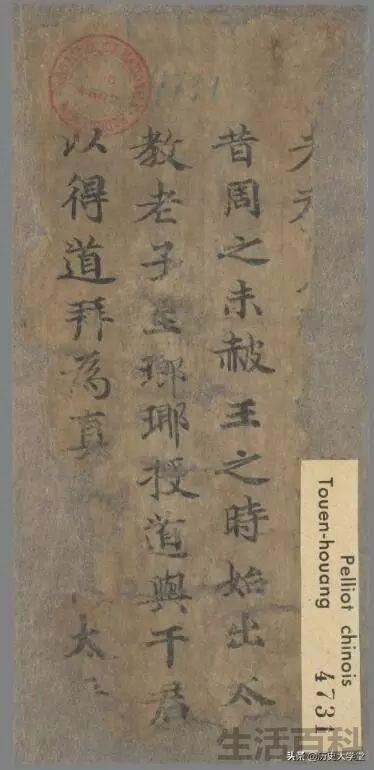 昔周之末赧王之時始出太
教老子至瑯瑘授道與干君
以得道拜為真 太
4731
Pelliot chinois
Touen-houang
4731
生活百科
头条 @历史大学堂